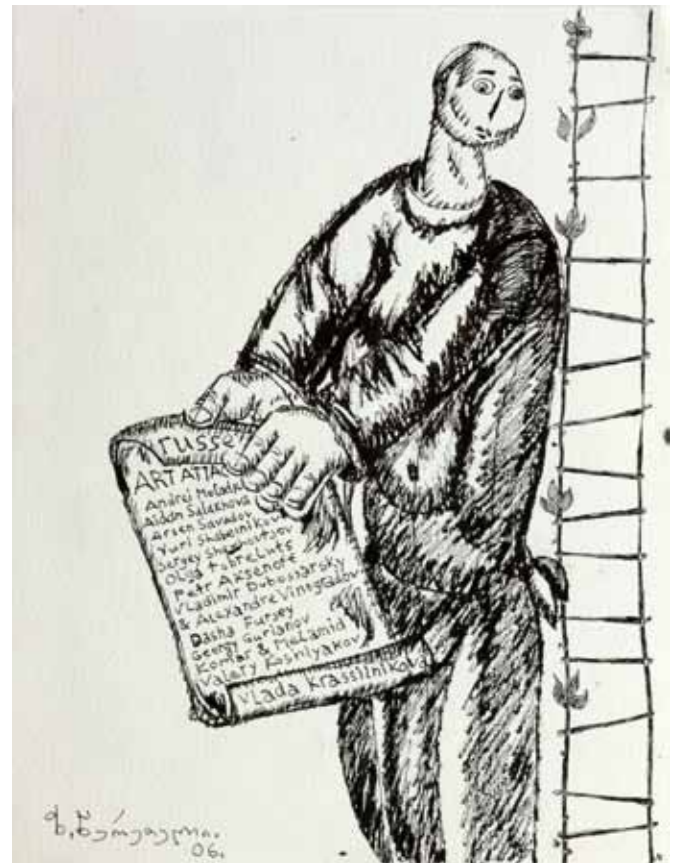 russe
ART ATTA
Andrei Molodk
Aidan Salakhova
Arsen Savadov
Yuri Shabelnikov
Sergey Shekhovtsov
Olga Tobreluts
Petr Axsenoff
Vladimir Dubossarsky
& Alexandre Vinogradov
Dasha Fursey
Georgy Gurianov
Komar & Melamid
Valery Koshlyakov
Vlada Krassilnikova
ზ. წერეთელი.
06.